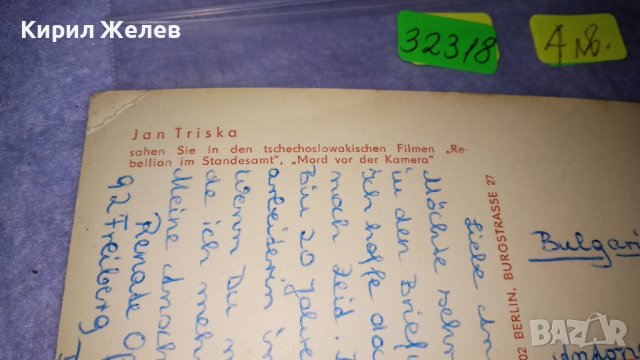 Кирил Желев
32318
4 лв.
Jan Triska
sahen Sie in den tschechoslowakischen Filmen „Re-
bellion im Standesamt“, „Mord vor der Kamera“
Liebe
Möchte sehr
in den Brief
Ich hoffe da
noch Zeid.
Bin 20 Jahre
arbeiterin in
Wenn Du m
de ich meh
Meine Ansch
Renate
92 Freiberg
02 BERLIN, BURGSTRASSE 27
Bulgari
BAZAR.BG